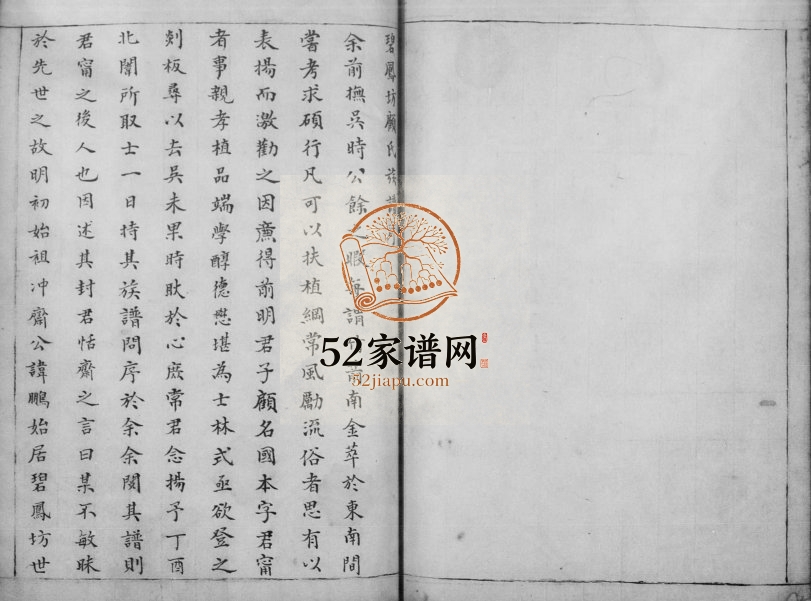 碧鳳坊顧氏族譜
余前撫吳時公餘暇每謂前南金萃於東南間
嘗考求碩行凡可以扶植綱常風勵流俗者思有以
表揚而激勸之因廉得前明君子顧名國本字君甯
者事親孝植品端學醇德懋堪為士林式亟欲登之
剡板尋以去吳未果時耿於心庶常君念揚予丁酉
北闈所取士一日持其族譜問序於余余閱其譜則
君甯之後人也因述其封君恬齋之言曰某不敏昧
於先世之故明初始祖冲齋公諱鵬始居碧鳳坊世
52家谱网
52jiapu.com